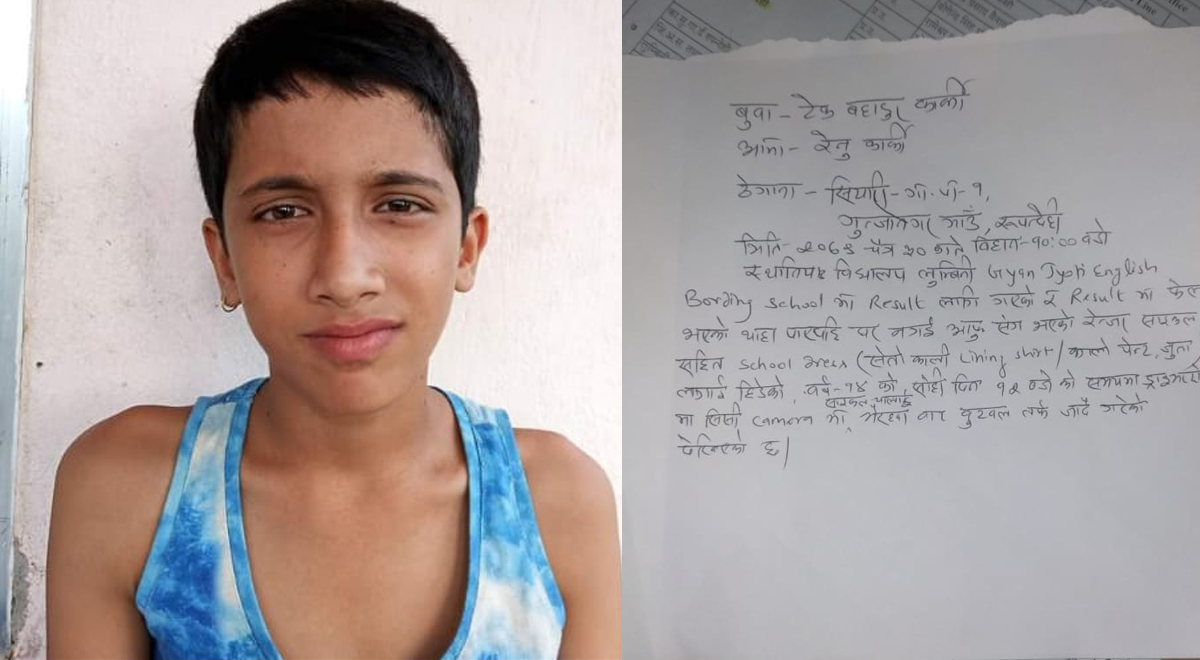 बुवा - टेक बहादुर कार्की
आमा - रेनु कार्की
ठेगाना - सियारी - गा.पा - १,
रुपन्देही
मिति - चैत्र ३० गते विहान - १०:०० बजे
विद्यालय लुम्बिनी Gyan Jyoti English
Bording School मा Result लागि गएको र Result मा फेल
भएको थाहा पाएपछि घर नगई आफु संग भएको रेन्जर साईकल
सहित School dress (सेतो काली Lining shirt / कालो पेन्ट, जुत्ता
लगाई हिडेको, वर्ष - १४ को, सोही दिन १२ बजे को समयमा
साईकल चलाई
मा सिसी Camera मा, भैरहवा बाट बुटवल तर्फ जादै गरेको
देखिएको छ।